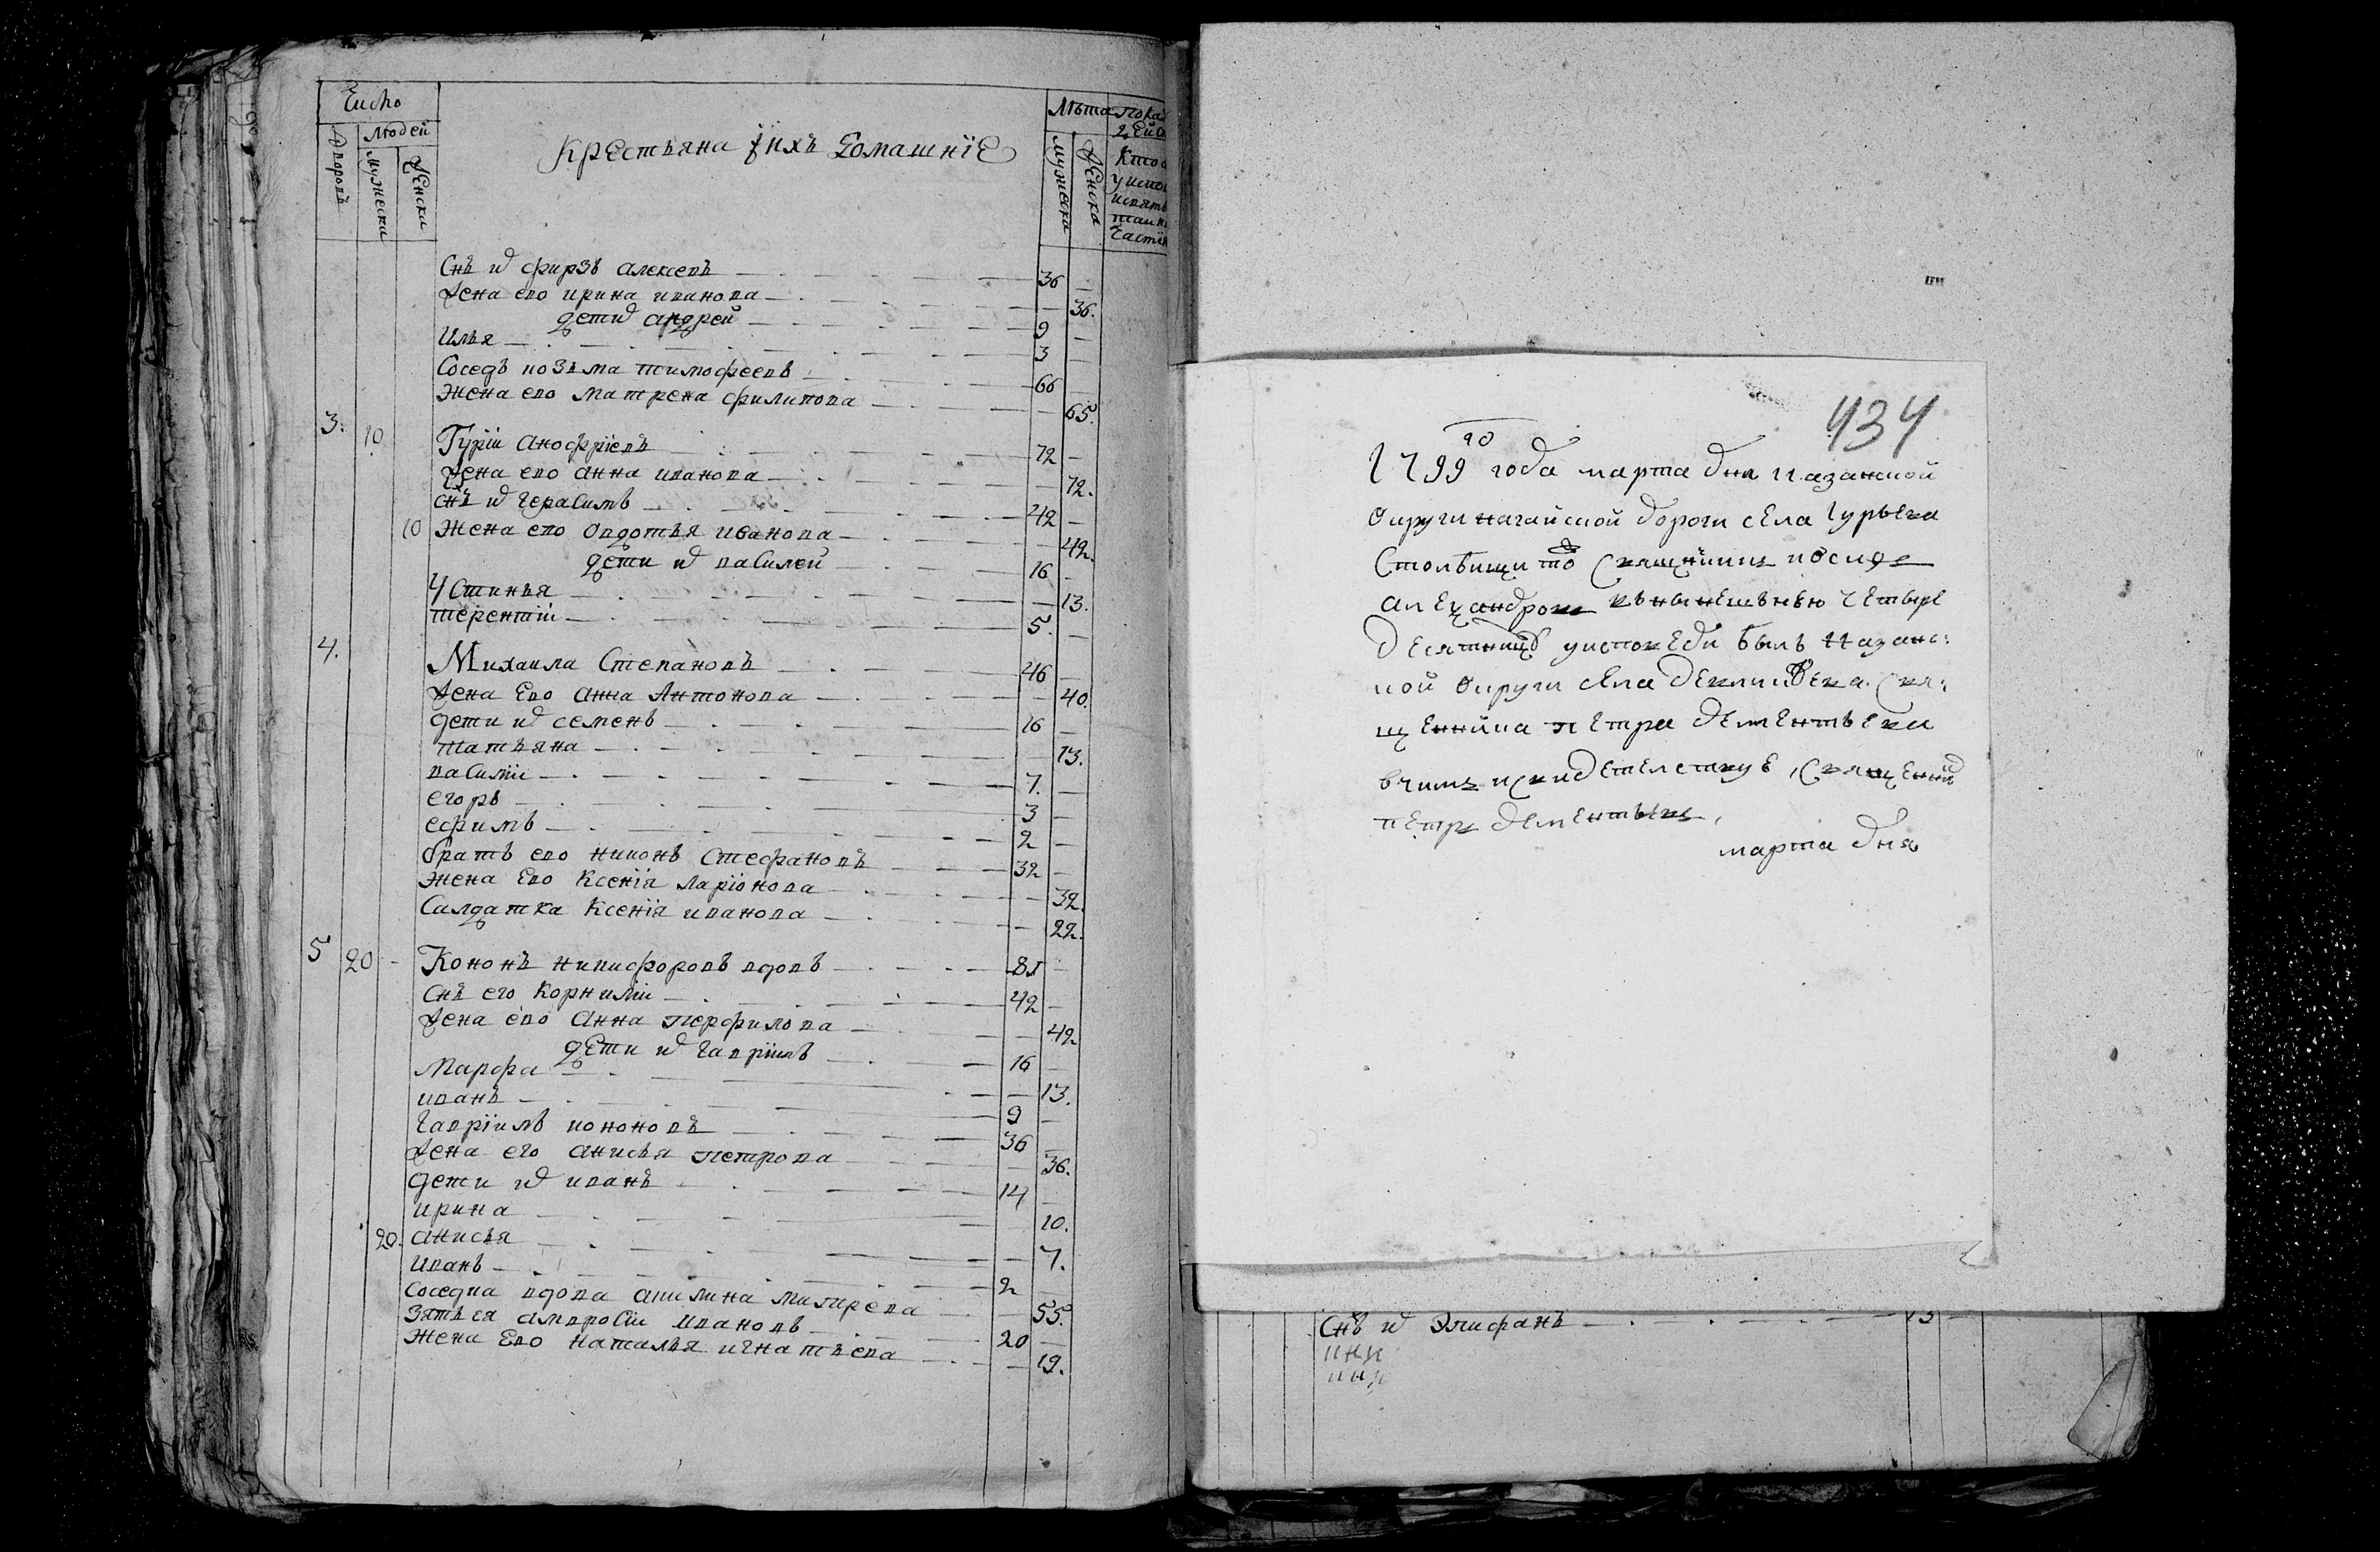 Число
Людей
Дворовъ
Мужеска
Женска
Крестьяна їихъ Домашнїе
Лѣта
Мужеска
Женска
Снъ фирзъ алексевъ 36
Жена ево ирина иванова 36.
дети андрей 9
Илья 3
Соседъ козьма тимофеевъ 66
Жена ево матрена филипова 65.
3. 10 Гурїи анофрїевъ 72
Жена ево анна иванова 72.
снъ герасимъ 42
10 Жена ево овдотья иванова 42.
дети василеи 16
Устинья 13.
терентїи 5.
4. Михаила Степановъ 46
Жена Ево анна Антонова 40.
дети семенъ 16
татьяна 13.
василїи 7.
егоръ 3
ефимъ 2
братъ ево никонъ Стефановъ 32
Жена Ево Ксенїя ларїонова 32.
Салдатка Ксенїя иванова 22.
5 20 Кононъ никифоровъ вдовъ 81
снъ его Корнилїи 42
Жена ево Анна перфилова 42
дети гаврїилъ 16
Марфа 13.
иванъ 9
гаврїилъ кононовъ 36
Жена его анисья петрова 36.
дети иванъ 14
ирина 10.
20. анисья 7.
Иванъ 2
соседка вдова акилина 55.
зять ея амвросїи Ивановъ 20
Жена Ево наталья игнатьева 19.
434
1799 года марта дня казанской
округи нагайской дороги села гурьева
Столбищи то
алеѯандров в нынешьнею четыре
десятницѹ у исповеди былъ казанс:
кой округи села свя:
щенника петра дементьева
в чимъ и свидетелствуе священник
петръ дементьевъ,
марта дня
Снъ Эпифанъ 13